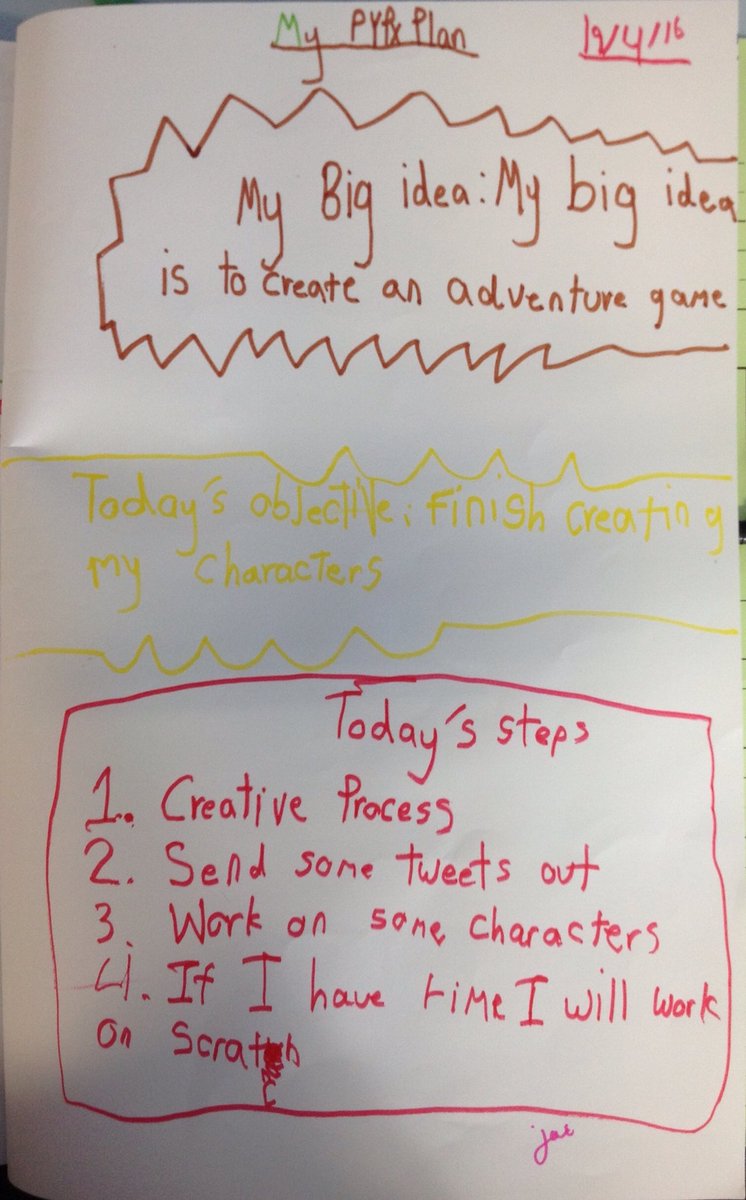 My PYPx Plan 19/4/16
My Big idea: My big idea
is to create an adventure game
Today's objective: Finish creating
my characters
Today's steps
1. Creative Process
2. Send some tweets out
3. Work on some characters
4. If I have time I will work
on Scratch